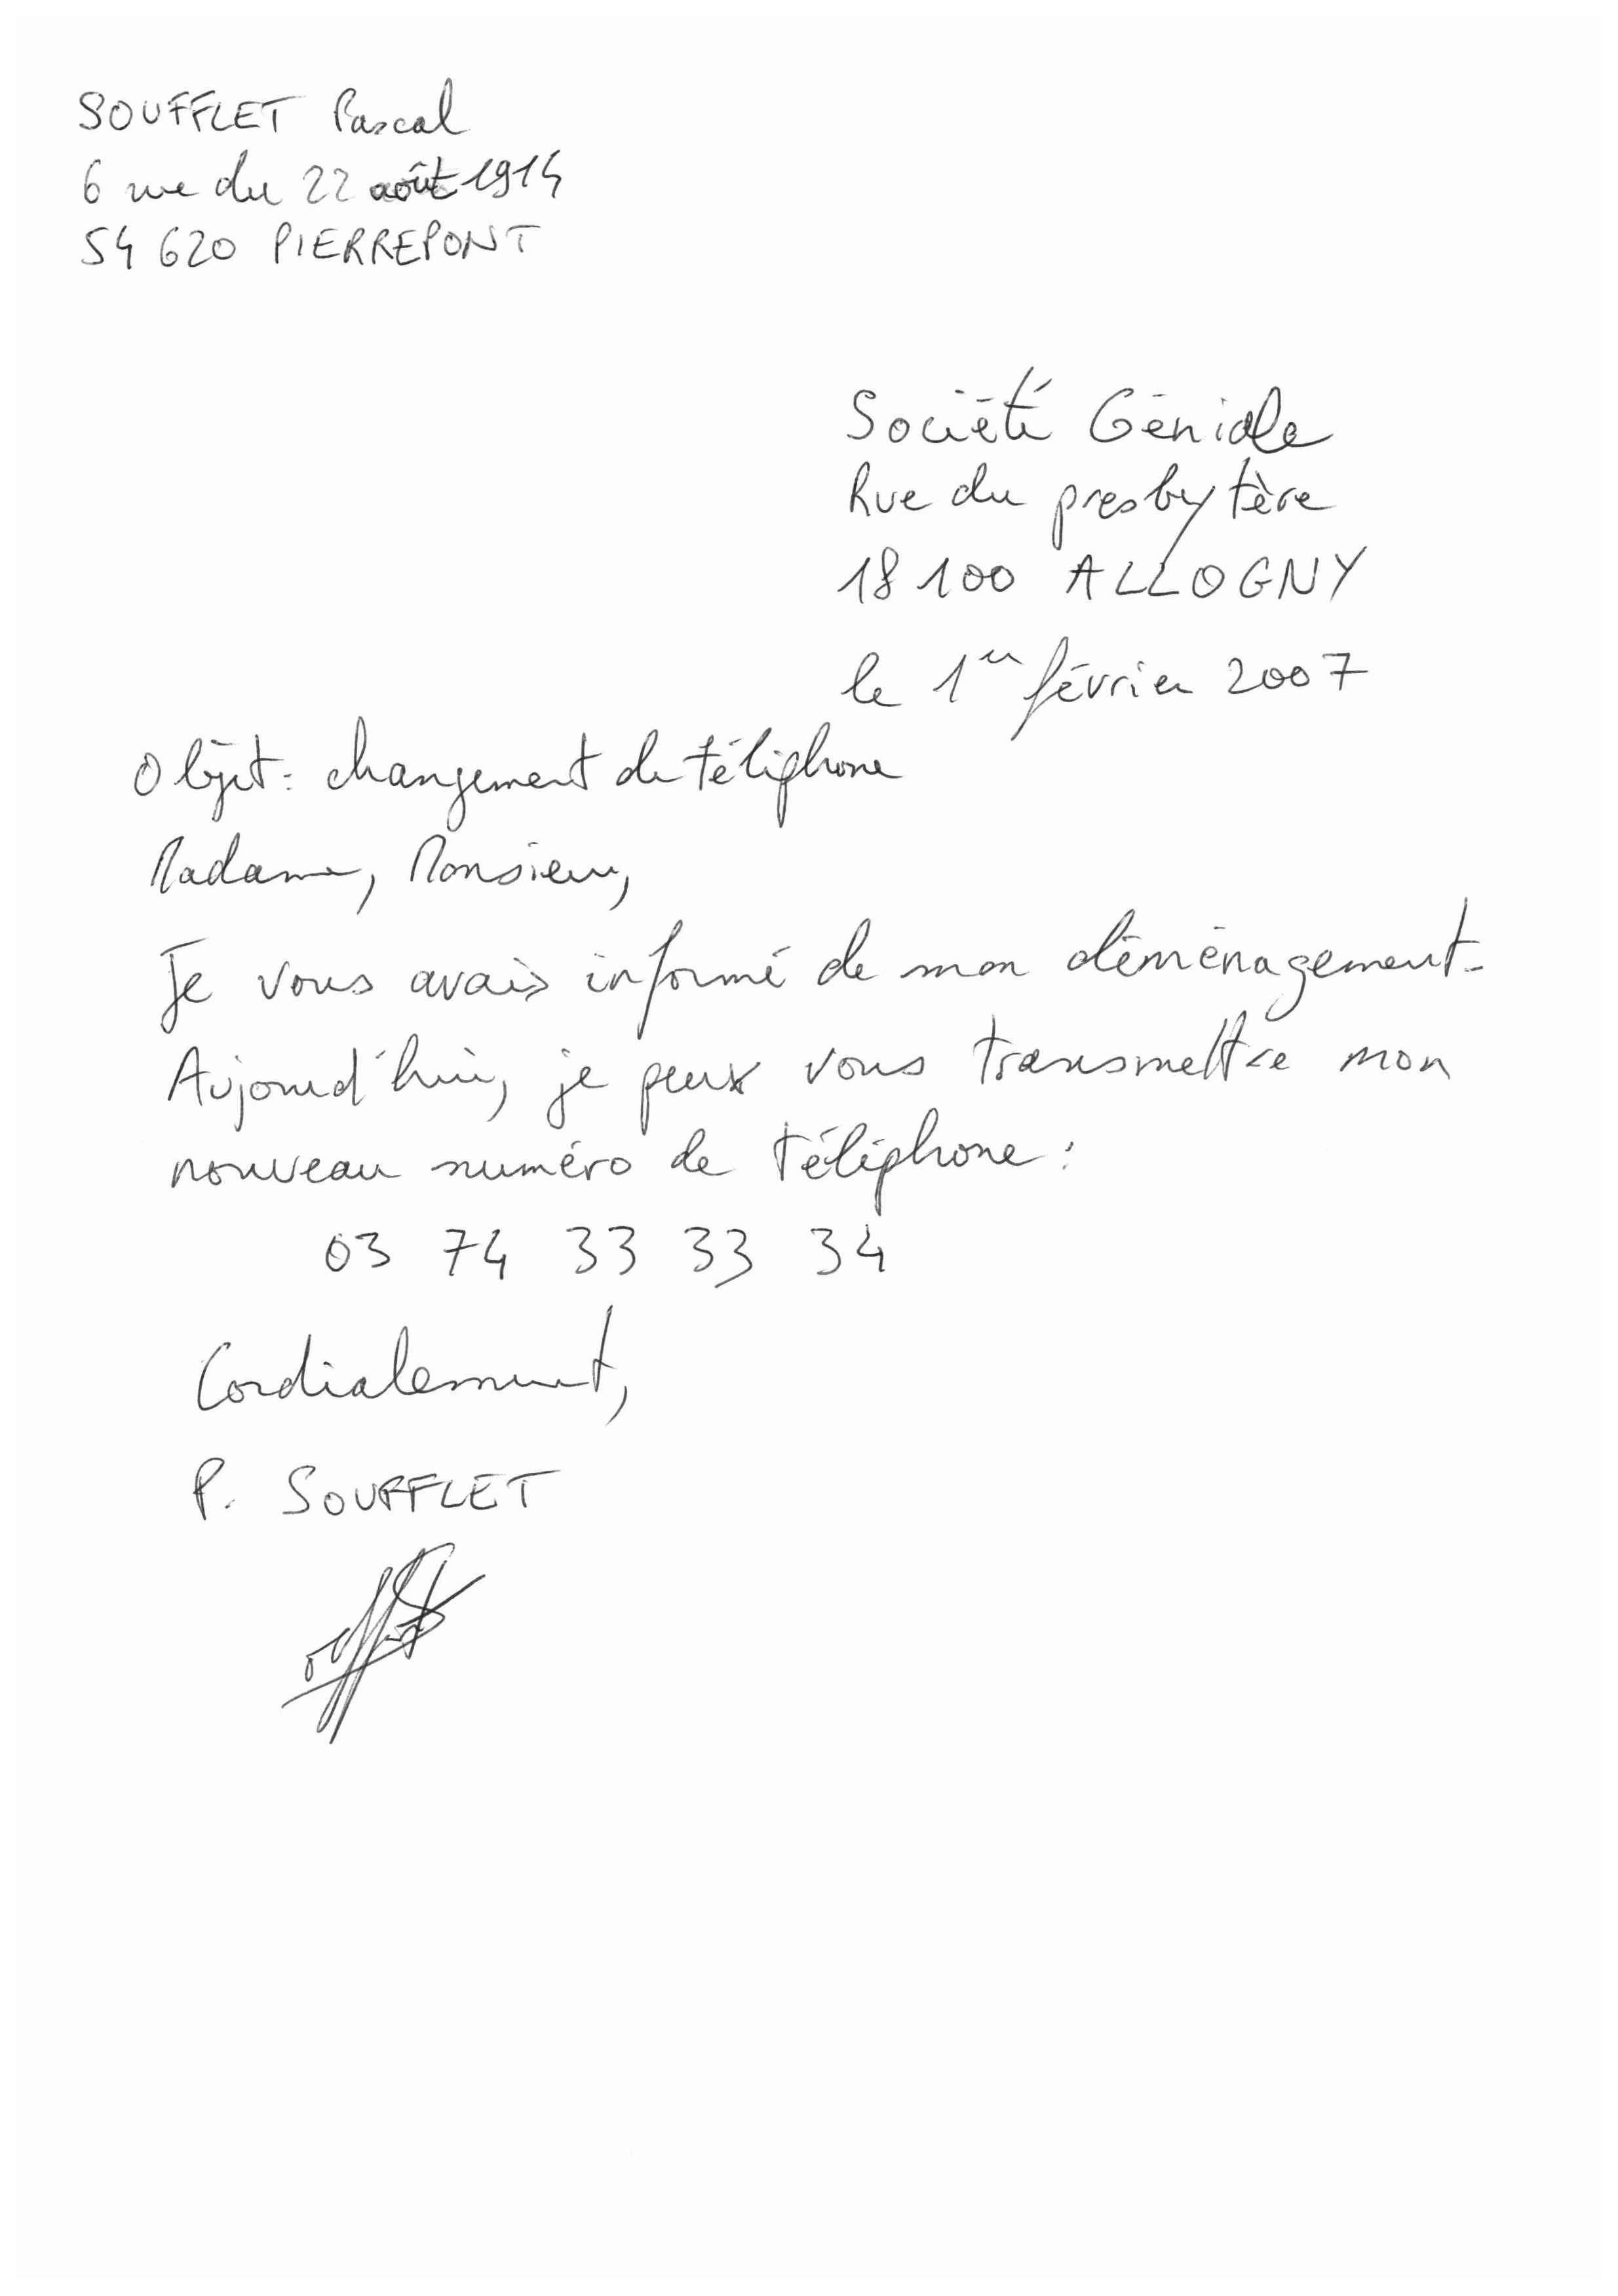 SOUFFLET Pascal
6 rue du 22 août 1914
54 620 PIERREPONT
Société Géniale
Rue du presbytère
18 100 ALLOGNY
le 1er février 2007
Objet : changement de téléphone
Madame, Monsieur,
Je vous avais informé de mon déménagement.
Aujourd'hui, je peux vous transmettre mon
nouveau numéro de téléphone :
03 74 33 33 34
Cordialement,
P. SOUFFLET